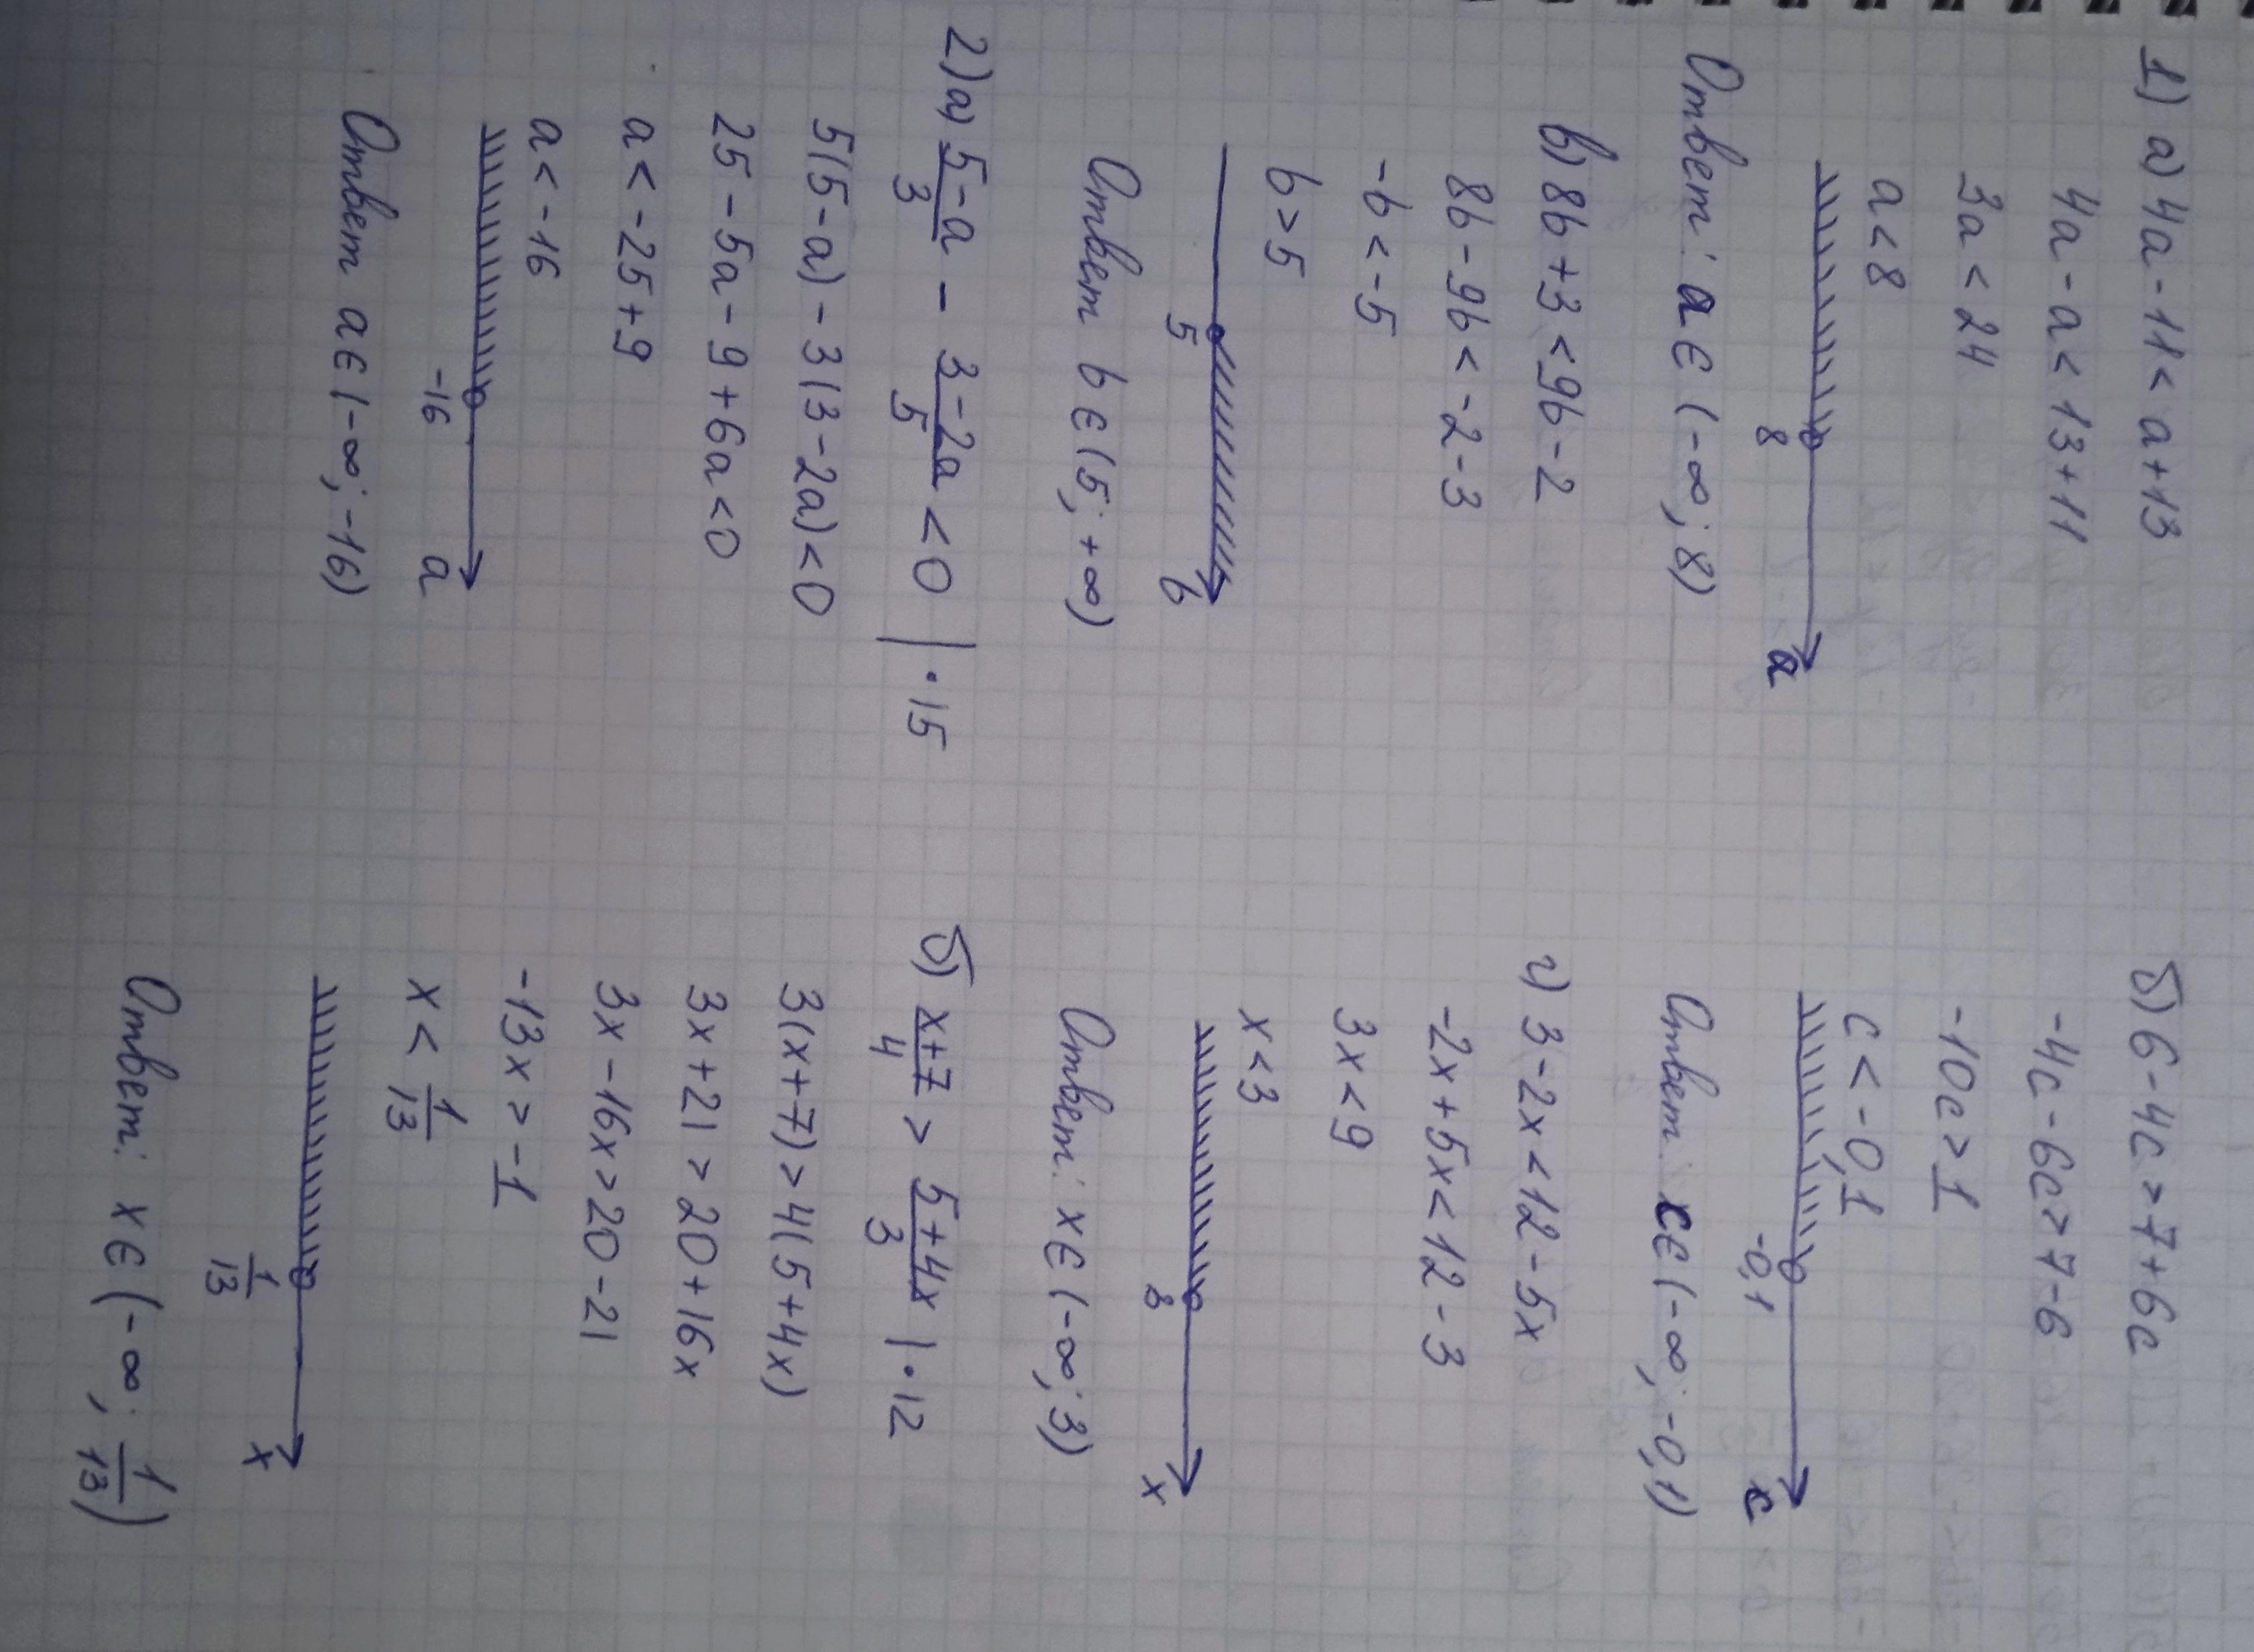 1) а) 4a - 11 < a + 13
4a - a < 13 + 11
3a < 24
a < 8
8 a
Ответ: a ∈ (-∞; 8)
б) 6 - 4c > 7 + 6c
-4c - 6c > 7 - 6
-10c > 1
c < -0,1
-0,1 c
Ответ: c ∈ (-∞; -0,1)
в) 8b + 3 < 9b - 2
8b - 9b < -2 - 3
-b < -5
b > 5
5 b
Ответ b ∈ (5; +∞)
г) 3 - 2x < 12 - 5x
-2x + 5x < 12 - 3
3x < 9
x < 3
3 x
Ответ: x ∈ (-∞; 3)
2) а) (5-a)/3 - (3-2a)/5 < 0 | · 15
5(5-a) - 3(3-2a) < 0
25 - 5a - 9 + 6a < 0
a < -25 + 9
a < -16
-16 a
Ответ a ∈ (-∞; -16)
б) (x+7)/4 > (5+4x)/3 | · 12
3(x+7) > 4(5+4x)
3x + 21 > 20 + 16x
3x - 16x > 20 - 21
-13x > -1
x < 1/13
1/13 x
Ответ: x ∈ (-∞; 1/13)